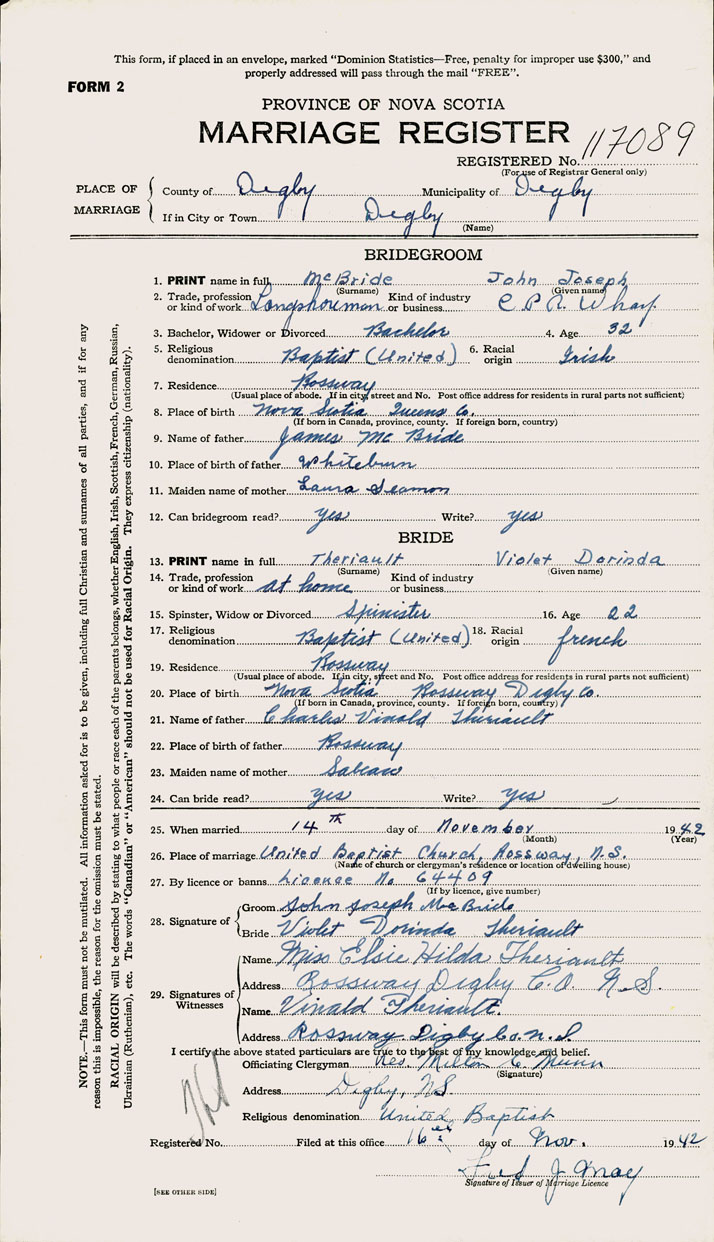 This form, if placed in an envelope, marked "Dominion Statistics—Free, penalty for improper use $300," and
properly addressed will pass through the mail "FREE".
FORM 2
PROVINCE OF NOVA SCOTIA
MARRIAGE REGISTER
REGISTERED No. 117089
(For use of Registrar General only)
PLACE OF MARRIAGE
County of Digby Municipality of Digby
If in City or Town Digby
(Name)
BRIDEGROOM
1. PRINT name in full McBride John Joseph
(Surname) (Given name)
2. Trade, profession or kind of work Longshoreman Kind of industry or business C P R Wharf
3. Bachelor, Widower or Divorced Bachelor 4. Age 32
5. Religious denomination Baptist (United) 6. Racial origin Irish
7. Residence Rossway
(Usual place of abode. If in city, street and No. Post office address for residents in rural parts not sufficient)
8. Place of birth Nova Scotia Queens Co.
(If born in Canada, province, county. If foreign born, country)
9. Name of father James Mc Bride
10. Place of birth of father Whiteburn
11. Maiden name of mother Laura Seamon
12. Can bridegroom read? yes Write? yes
BRIDE
13. PRINT name in full Theriault Violet Dorinda
(Surname) (Given name)
14. Trade, profession or kind of work at home Kind of industry or business
15. Spinster, Widow or Divorced Spinister 16. Age 22
17. Religious denomination Baptist (United) 18. Racial origin french
19. Residence Rossway
(Usual place of abode. If in city, street and No. Post office address for residents in rural parts not sufficient)
20. Place of birth Nova Scotia Rossway Digby Co.
(If born in Canada, province, county. If foreign born, country)
21. Name of father Charles Vinald Theriault
22. Place of birth of father Rossway
23. Maiden name of mother Sabean
24. Can bride read? yes Write? yes
25. When married 14th day of November 1942
(Month) (Year)
26. Place of marriage United Baptist Church, Rossway, N.S.
(Name of church or clergyman's residence or location of dwelling house)
27. By licence or banns Licence No 64409
(If by licence, give number)
28. Signature of
Groom John Joseph McBride
Bride Violet Dorinda Theriault
29. Signatures of Witnesses
Name Miss Elsie Hilda Theriault
Address Rossway Digby C.O. N.S.
Name Vinald Theriault.
Address Rossway Digby Co. N.S
I certify the above stated particulars are true to the best of my knowledge and belief.
Officiating Clergyman Rev. Milton C. Munn
(Signature)
Address Digby, N.S.
Religious denomination United Baptist
Registered No. Filed at this office 16th day of Nov. 1942
Fred J May
Signature of Issuer of Marriage Licence
[SEE OTHER SIDE]
NOTE.—This form must not be mutilated. All information asked for is to be given, including full Christian and surnames of all parties, and if for any
reason this is impossible, the reason for the omission must be stated.
RACIAL ORIGIN will be described by stating to what people or race each of the parents belongs, whether English, Irish, Scottish, French, German, Russian,
Ukrainian (Ruthenian), etc. The words "Canadian" or "American" should not be used for Racial Origin. They express citizenship (nationality).